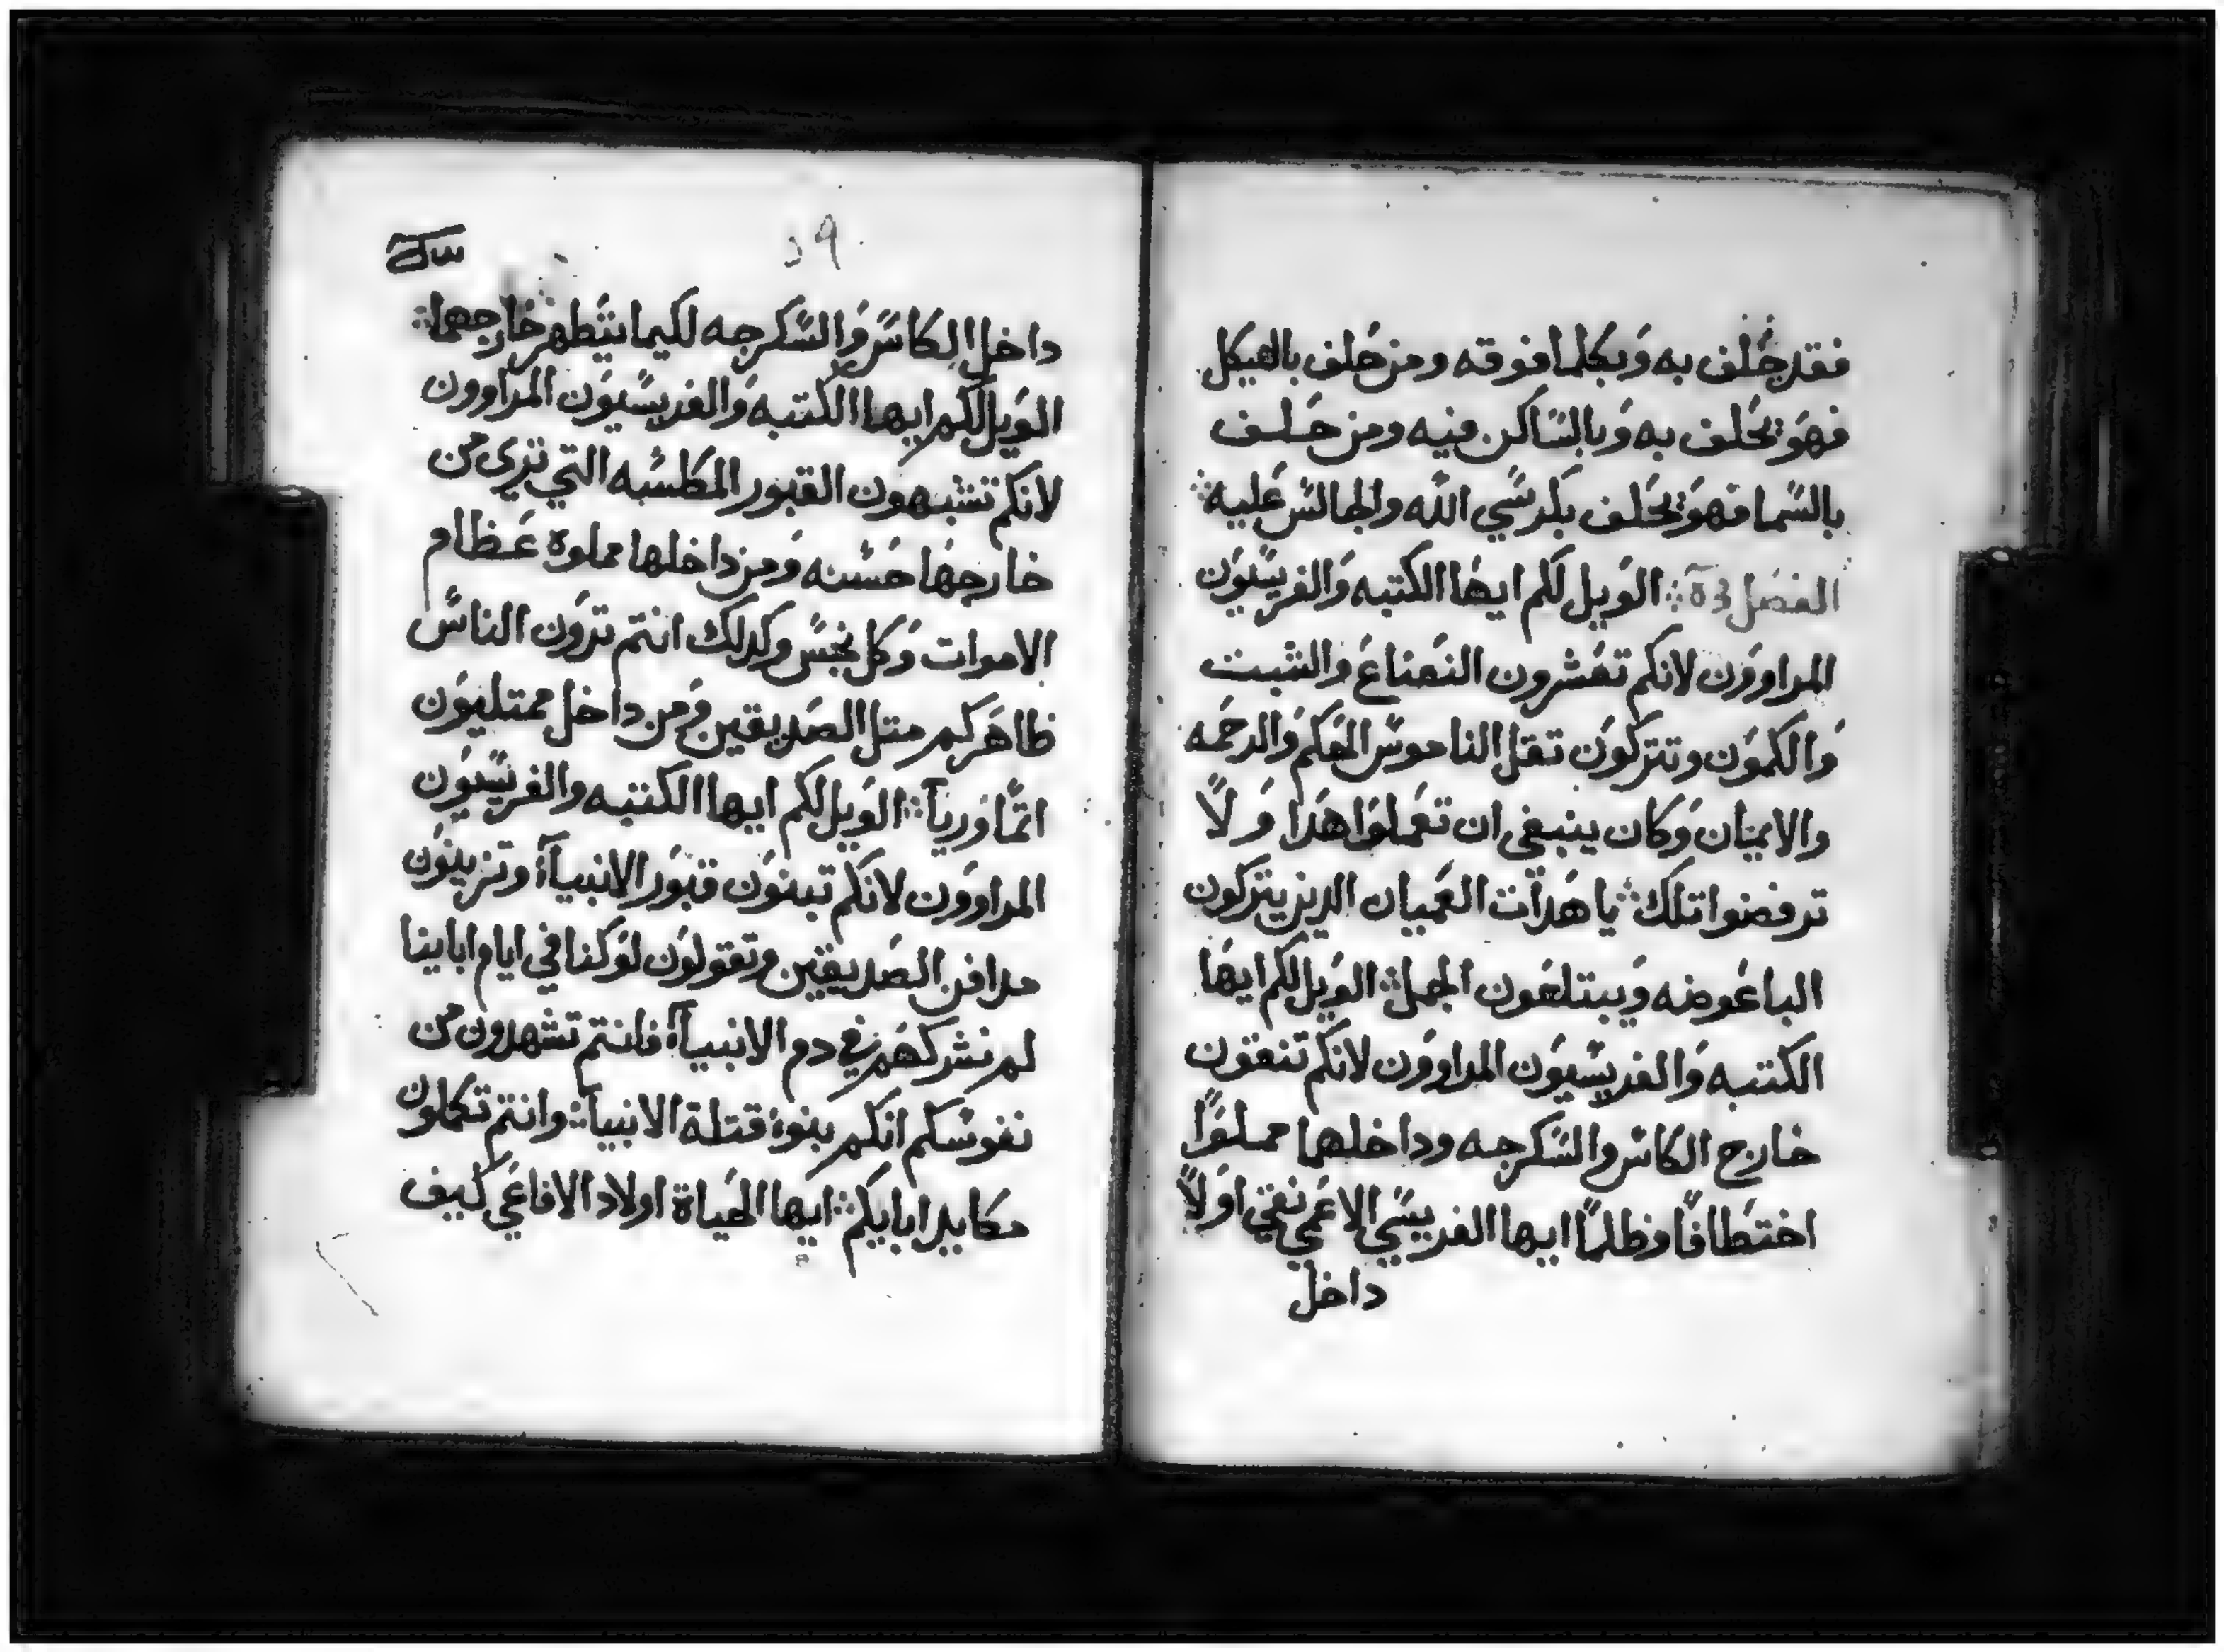 فقد حلف به وَبكلما فوقه ومن حَلف بالهيكل
فهوَ يحَلف به وَبالسَاكن فيه ومن حَلف
بالسَما فهوَ يحَلف بكرسَي الله والجالسَ عَليه
الفصَل الوَيل لكم ايهَا الكتبه وَالفريسَيوَن
المراووَن لانكم تعَشرون النعَناعَ والشبت
وَالكموَن وتتركوَن تقل الناموسَ الحَكم وَالرحَمه
والايمَان وَكان ينبغي ان تعَملوَا هَدا وَلاً
ترفضوا تلك يا هَداَت العَميان الدين يتركون
الباعَوضه وَيبتلعَون الجمل الوَيل لكم ايهَا
الكتبه وَالفريسَيوَن المراووَن لانكم تنقون
خارج الكاسَ والسَكرجه وداخلهما مملوَاً
اختطَافاً وظلماً ايها الفريسَي الاعَمي نقي اوَلاً
داخل
٥٩
داخل الكَاسَ وَالسَكرجه لكيما يتَطهر خارجهما
الوَيل لكم ايها الكتبه وَالفريسَيوَن المراوون
لانكم تشبهون القبور المكلسَه التي تري من
خارجهَا حَسَنه وَمن داخلها مملوة عَظام
الاموات وَكل نجسَ وكدلك انتم تروَن الناسَ
ظاهَركم متل الصَديقين وَمن داخل ممتليوَن
اتمًا وَرياً الوَيل لكم ايها الكتبه والفريسَيوَن
المراووَن لانكَم تبنوَن قبوَر الانبيآء وتزينوَن
مدافن الصَديقين وتقولوَن لوَ كنا في ايام اباينا
لم نشركهَم في دم الانبيآء فانتم تشهدون من
نفوسَكم انكم بنوَ قتلة الانبيآ وانتم تكملون
مكاييل ابايكَم ايها الحَياة اولاد الافاعَي كيف